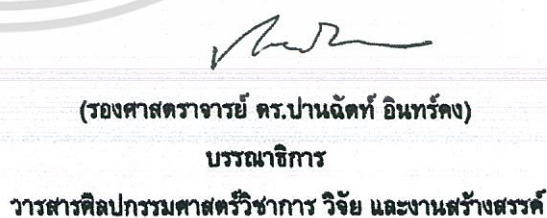 (รองศาสตราจารย์ ดร.ปานฉัตท์ อินทร์คง)
บรรณาธิการ
วารสารศิลปกรรมศาสตร์วิชาการ วิจัย และงานสร้างสรรค์